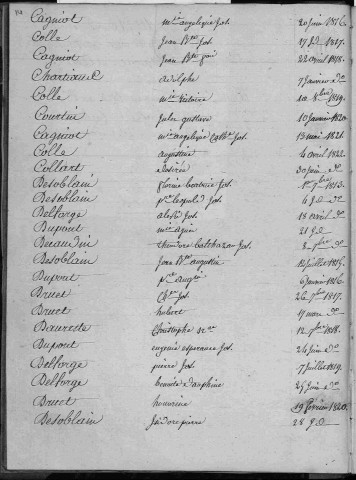 Cagniot mie angelique Jos. 20 Juin 1816.
Colle Jean Bte Jos. 17 Jd 1817.
Cagniot Jean Bte 22 avril 1818.
Chartiaux adolphe 7 Janvier do
Colle mie victoire 10 8bre 1819.
Courtin Jules gustave 10 Janvier 1820.
Cagniot mie angelique Jos. 13 mai 1821.
Colle augustine 4 avril 1822.
Collart Désirée 30 Juin do
Desoblain Jos. 1er 7bre 1813.
Desoblain pre leopold Jos. 4 do
Delforge alexis Jos. 18 avril do
Dupont mie agnes 21 do
Decaudin theodore balthazar Jos. 8 do
Desoblain Jean Bte augustin 12 Juillet 1815.
Dupont 6 Janvier 1816.
Druet Jos. 26 1817.
Druet hubert 17 mars do
Daureste Christophe 12 1818.
Dupont eugenie esperance Jos. 24 Juin do
Delforge pierre Jos. 7 Juillet 1819.
Delforge Dauphine 25 Juin do
Druet honorine 19 février 1820.
Desoblain Isidore pierre 28 do